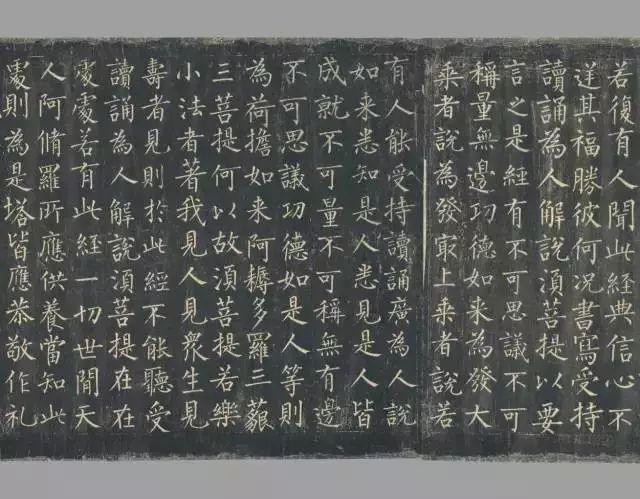 若復有人聞此經典信心不
逆其福勝彼何况書寫受持
讀誦為人解說湏菩提以要
言之是經有不可思議不可
稱量無邊功德如来為發大
乘者說為發冣上乘者說若
有人能受持讀誦廣為人說
如来悉知是人悉見是人皆
成就不可量不可稱無有邊
不可思議功德如是人等則
為荷擔如来阿耨多羅三藐
三菩提何以故湏菩提若樂
小法者著我見人見衆生見
壽者見則於此經不能聽受
讀誦為人解說湏菩提在在
處處若有此經一切世間天
人阿脩羅所應供養當知此
處則為是塔皆應恭敬作礼